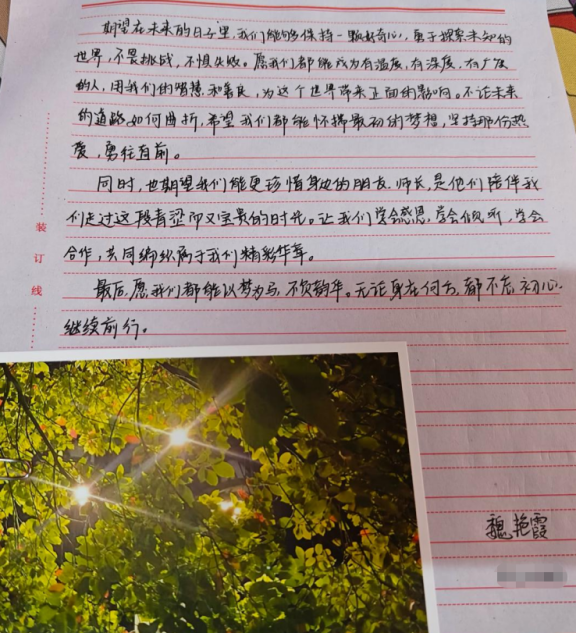 期望在未来的日子里，我们能够保持一颗好奇心，勇于探索未知的
世界，不畏挑战，不惧失败。愿我们都能成为有温度，有深度，有广度
的人，用我们的智慧和善良，为这个世界带来正面的影响。不论未来
的道路如何曲折，希望我们都能怀揣最初的梦想，坚持那份热
爱，勇往直前。
同时，也期望我们能更珍惜身边的朋友、师长，是他们陪伴我
们走过这段青涩而又宝贵的时光。让我们学会感恩，学会，学会
合作，共同编织属于我们精彩华章。
最后，愿我们都能以梦为马，不负韶华。无论身在何方，都不忘初心，
继续前行。
装
订
线
魏艳霞